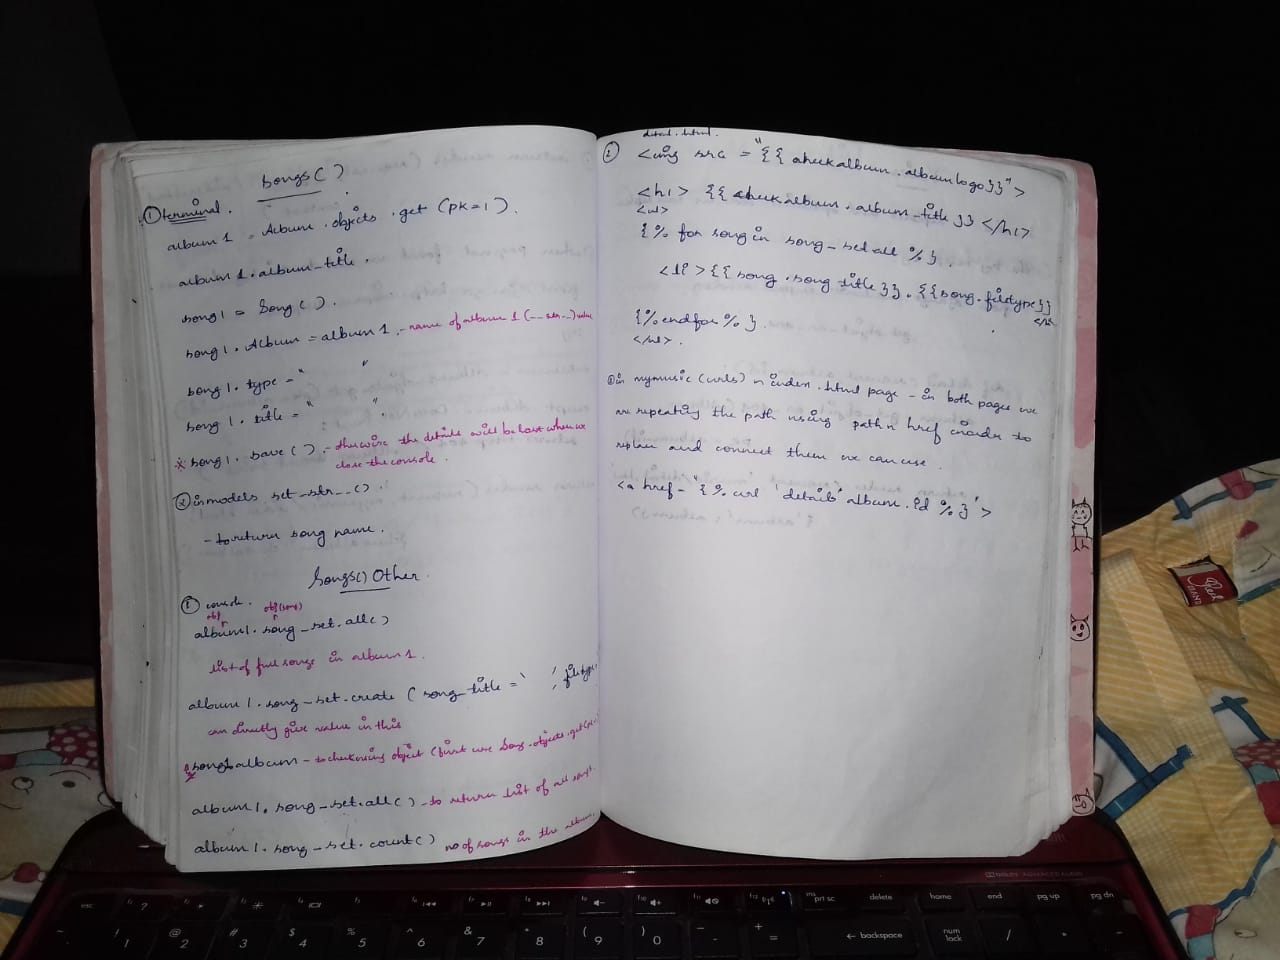 Songs()
① terminal.
album1 = Album.objects.get(pk=1).
album1.album_title.
song1 = Song().
song1.Album = album1. - name of album 1 (__str__) value
song1.type = "      "
song1.title = "      ".
* song1.save(). - otherwise the details will be lost when we
close the console.
② in models set __str__()
- to return song name.
Songs() Other.
① console.
obj obj(song)
album1.song_set.all()
list of full songs in album1.
album1.song_set.create(song_title = '      ', filetype
can directly give value in this
song1.album - to checking object (first use Song.objects.get(pk=
album1.song_set.all() - to return list of all songs.
album1.song_set.count() no of songs in the album.
detail.html.
② <img src = "{{ album.albumlogo}}">
<h1> {{ album.album_title }} </h1>
<ul>
{% for song in song_set.all %}.
<li>{{song.song title}}.{{song.filetype}}
</li>
{% endfor %}.
</ul>.
in mymusic (urls) n index.html page - in both pages we
are repeating the path using path n href inorder to
replace and connect them we can use.
<a href = "{% url 'details' album.id %}">
esc
prt sc
delete
home
end
pg up
pg dn
backspace
num
lock